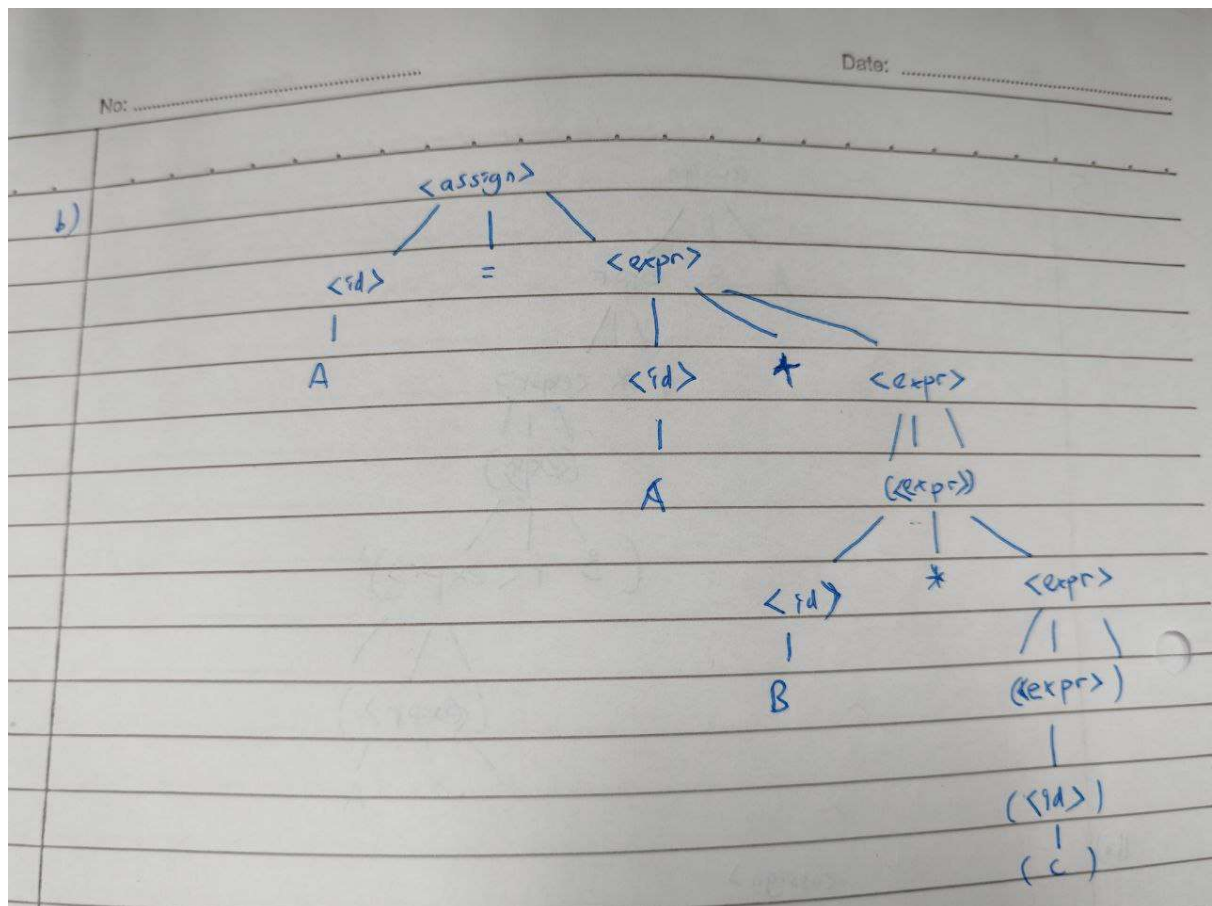 No: Date:
b) <assign>
<id> = <expr>
A <id> * <expr>
A (<expr>)
<id> * <expr>
B (<expr>)
(<id>)
( C )